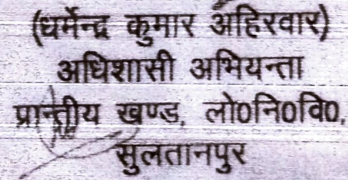 (धर्मेन्द्र कुमार अहिरवार)
अधिशासी अभियन्ता
प्रान्तीय खण्ड, लो0नि0वि0,
सुलतानपुर